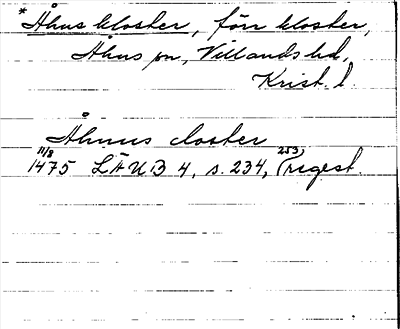 *Åhus kloster, förr kloster,
Åhus sn, Villands hd,
Krist. l.
Åhuus closter
11/8 253,
1475 LÄUB 4, s. 234, (regest.